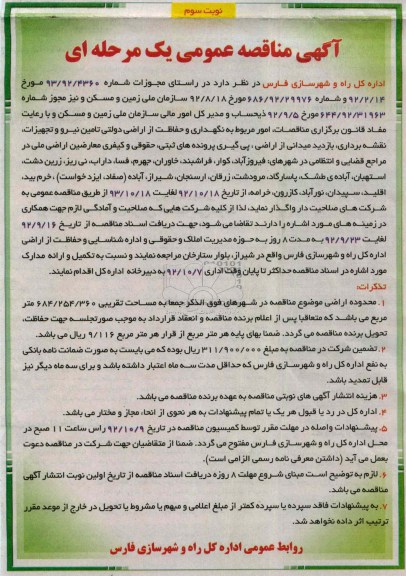 نوبت سوم
آگهی مناقصه عمومی یک مرحله ای
اداره کل راه و شهرسازی فارس در نظر دارد در راستای مجوزات شماره ۹۳/۹۲/۴۳۶۰ مورخ
۹۲/۲/۱۴ و شماره ۶۸۶/۹۲/۲۹۹۷۶ مورخ ۹۲/۸/۱۸ سازمان ملی زمین و مسکن و نیز مجوز شماره
۶۴۴/۹۲/۳۱۹۶۳ مورخ ۹۲/۹/۵ ذیحساب و مدیر کل امور مالی سازمان ملی زمین و مسکن و با رعایت
مفاد قانون برگزاری مناقصات، امور مربوط به نگهداری و حفاظت از اراضی دولتی تامین نیرو و تجهیزات،
نقشه برداری، بازدید میدانی از اراضی ، پی گیری پرونده های ثبتی، حقوقی و کیفری معارضین اراضی ملی در
مراجع قضایی و انتظامی در شهرهای: فیروزآباد، کوار، فراشبند، خاوران، جهرم، فسا، داراب، نی ریز، زرین دشت،
استهبان، آباده ی طشک، پاسارگاد، مرودشت، زرقان، ارسنجان، شیراز، آباده (صفاد، ایزدخواست) ، خرم بید،
اقلید، سپیدان، نورآباد، کازرون، خرامه، از تاریخ ۹۲/۱۰/۱۸ لغایت ۹۳/۱۰/۱۸ از طریق مناقصه عمومی به
شرکت های صلاحیت دار واگذار نماید، لذا از کلیه شرکت هایی که صلاحیت و آمادگی لازم جهت همکاری
در زمینه های مورد اشاره را دارند تقاضا می شود، جهت دریافت اسناد مناقصه از تاریخ ۹۲/۹/۱۶
لغایت ۹۲/۹/۲۳ به مدت ۸ روز به حوزه مدیریت املاک و حقوقی و اداره شناسایی و حفاظت از اراضی
اداره کل راه و شهرسازی فارس واقع در شیراز، بلوار ستارخان مراجعه نمایند و نسبت به تکمیل و ارائه مدارک
مورد اشاره در اسناد مناقصه حداکثر تا پایان وقت اداری ۹۲/۱۰/۷ به دبیرخانه اداره کل اقدام نمایند.
تذکرات:
۱. محدوده اراضی موضوع مناقصه در شهرهای فوق الذکر جمعا به مساحت تقریبی ۶۸۴/۲۵۴/۳۶۰ متر
مربع می باشد که متعاقبا پس از اعلام برنده مناقصه و انعقاد قرارداد به موجب صورتجلسه جهت حفاظت،
تحویل برنده مناقصه می گردد. ضمنا بهای پایه هر متر مربع از قرار هر متر مربع ۹/۱۱۶ ریال می باشد.
۲. تضمین شرکت در مناقصه به مبلغ ۳۱۱/۹۰۰/۰۰۰ ریال بوده که می بایست به صورت ضمانت نامه بانکی
به نفع اداره کل راه و شهرسازی فارس که حداقل مدت سه ماه اعتبار داشته باشد و برای سه ماه دیگر نیز
قابل تمدید باشد.
۳. هزینه انتشار آگهی های نوبتی مناقصه به عهده برنده مناقصه می باشد.
۴. اداره کل در رد یا قبول هر یک یا تمام پیشنهادات به هر نحوی از انحا، مجاز و مختار می باشد.
۵. پیشنهادات واصله در مهلت مقرر توسط کمیسیون مناقصه در تاریخ ۹۲/۱۰/۹ راس ساعت ۱۱ صبح در
محل اداره کل راه و شهرسازی فارس مفتوح می گردد. ضمنا از متقاضیان جهت شرکت در مناقصه دعوت
بعمل می آید (داشتن معرفی نامه رسمی الزامی است).
۶. لازم به توضیح است مبنای شروع مهلت ۸ روزه دریافت اسناد مناقصه از تاریخ اولین نوبت انتشار آگهی
مناقصه می باشد.
۷. به پیشنهادات فاقد سپرده یا سپرده کمتر از مبلغ اعلامی و مبهم یا مشروط یا تحویل در خارج از موعد مقرر
ترتیب اثر داده نخواهد شد.
روابط عمومی اداره کل راه و شهرسازی فارس